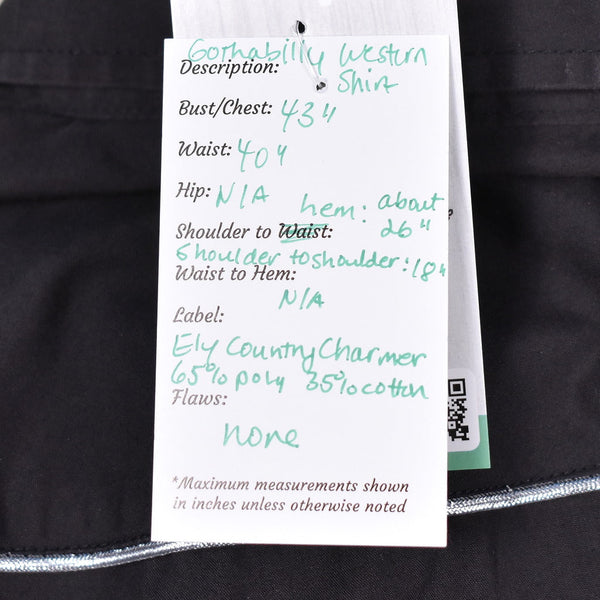 Gothabilly Western
Description: Shirt
Bust/Chest: 43"
Waist: 40"
Hip: N/A
hem: about
Shoulder to Waist: 26"
Shoulder to shoulder: 18"
Waist to Hem:
N/A
Label:
Ely Country Charmer
65% poly 35% cotton
Flaws:
none
*Maximum measurements shown
in inches unless otherwise noted
?